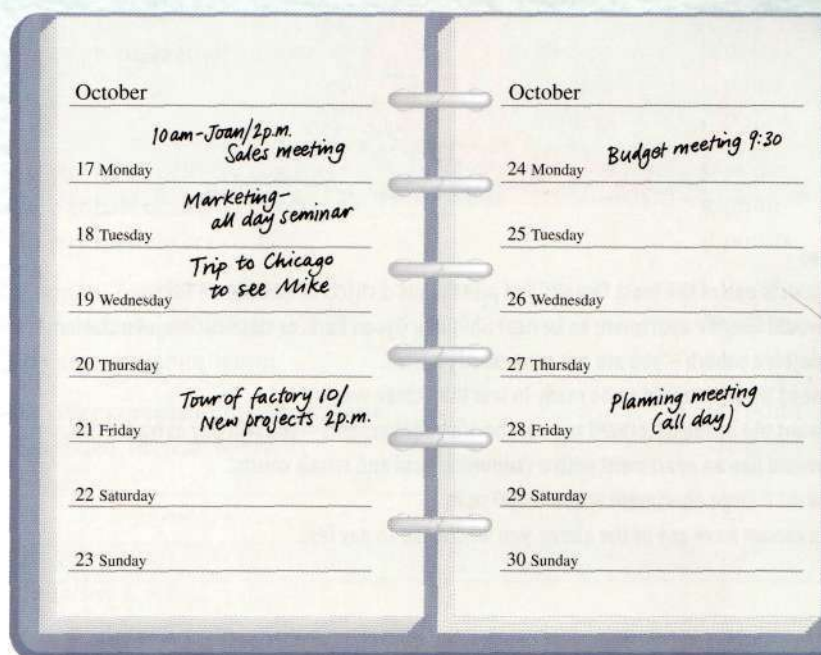 October
10am-Joan/2p.m.
Sales meeting
17 Monday
Marketing-
all day seminar
18 Tuesday
Trip to Chicago
to see Mike
19 Wednesday
20 Thursday
Tour of factory 10/
New projects 2p.m.
21 Friday
22 Saturday
23 Sunday
October
Budget meeting 9:30
24 Monday
25 Tuesday
26 Wednesday
27 Thursday
Planning meeting
(all day)
28 Friday
29 Saturday
30 Sunday